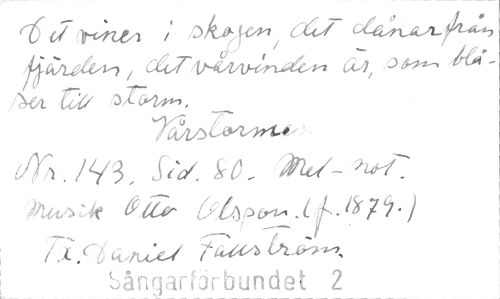 Det viner i skogen, det dånar från
fjärden, det vårvinden är, som blå-
ser till storm.
Vårstormen
Nr. 143. Sid. 80. Mel-not.
Musik Otto Olsson. (f. 1879.)
Tx. Daniel Fallström.
Sångarförbundet 2